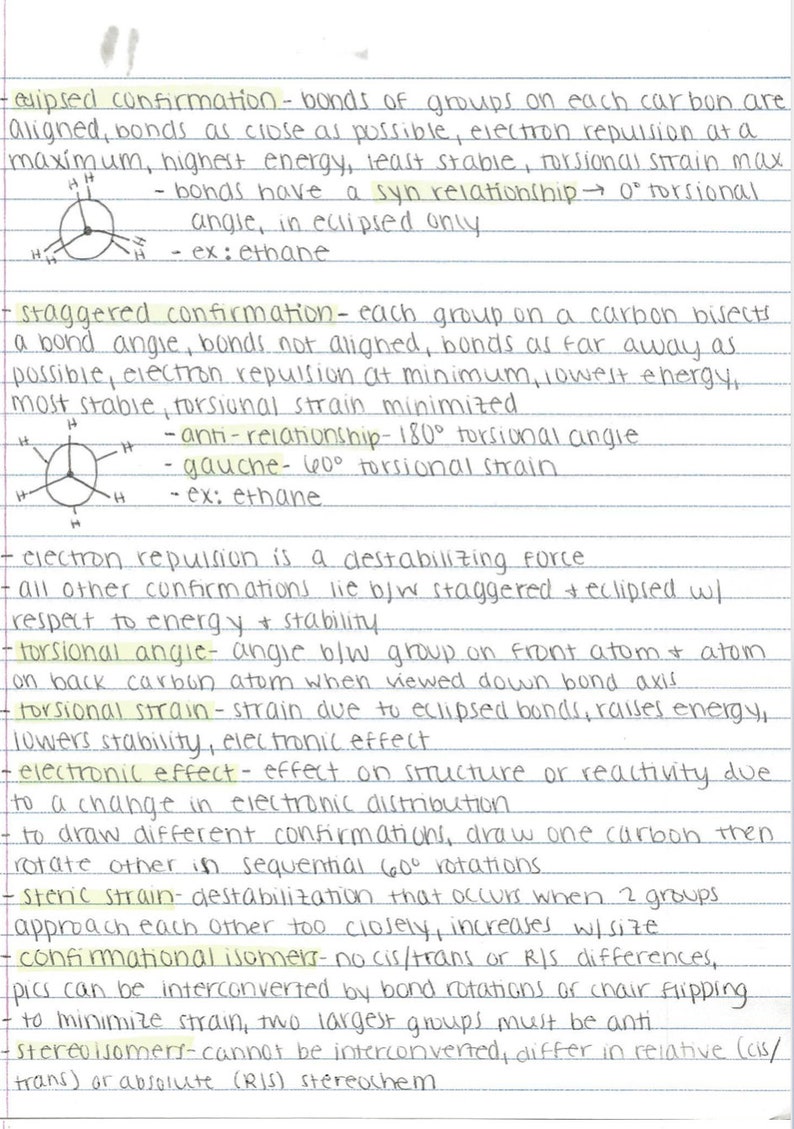 - eclipsed confirmation - bonds of groups on each carbon are
aligned, bonds as close as possible, electron repulsion at a
maximum, highest energy, least stable, torsional strain max
H H
- bonds have a syn relationship → 0° torsional
angle, in eclipsed only
H H H H
- ex: ethane
- staggered confirmation - each group on a carbon bisects
a bond angle, bonds not aligned, bonds as far away as
possible, electron repulsion at minimum, lowest energy,
most stable, torsional strain minimized
H
H H
- anti-relationship - 180° torsional angle
- gauche - 60° torsional strain
H H
- ex: ethane
H
- electron repulsion is a destabilizing force
- all other confirmations lie b/w staggered + eclipsed w/
respect to energy + stability
- torsional angle - angle b/w group on front atom + atom
on back carbon atom when viewed down bond axis
- torsional strain - strain due to eclipsed bonds, raises energy,
lowers stability, electronic effect
- electronic effect - effect on structure or reactivity due
to a change in electronic distribution
- to draw different confirmations, draw one carbon then
rotate other in sequential 60° rotations
- steric strain - destabilization that occurs when 2 groups
approach each other too closely, increases w/size
- confirmational isomers - no cis/trans or R/S differences,
pics can be interconverted by bond rotations or chair flipping
- to minimize strain, two largest groups must be anti
- stereoisomers - cannot be interconverted, differ in relative (cis/
trans) or absolute (R/S) stereochem